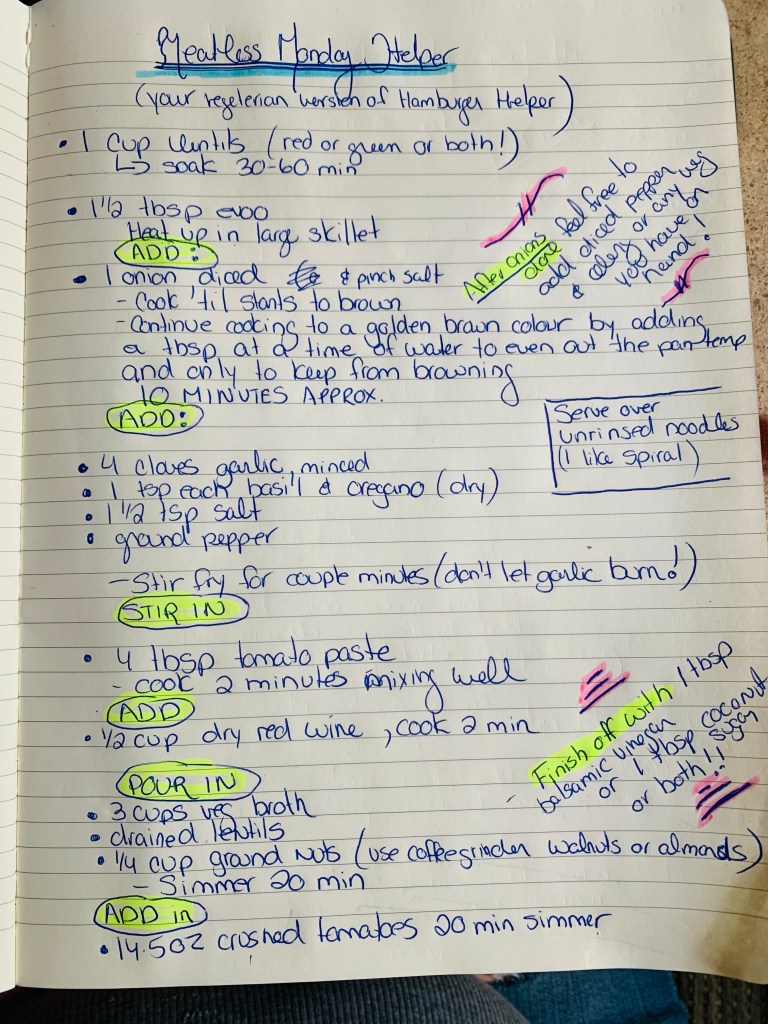 Meatless Monday Helper
(your vegeterian version of Hamburger Helper)
• 1 cup lentils (red or green or both!)
↳ soak 30-60 min
• 1 1/2 tbsp evoo
Heat up in large skillet
ADD:
• 1 onion diced & pinch salt
- Cook 'til starts to brown
- Continue cooking to a golden brown colour by adding
a tbsp at a time of water to even out the pan temp
and only to keep from browning
10 MINUTES APPROX.
After onions
done feel free to
add diced pepper
& celery or any veg
you have on
hand!
ADD:
Serve over
unrinsed noodles
(I like spiral)
• 4 cloves garlic, minced
• 1 tsp each basil & oregano (dry)
• 1 1/2 tsp salt
• ground pepper
- Stir fry for couple minutes (don't let garlic burn!)
STIR IN
• 4 tbsp tomato paste
- cook 2 minutes mixing well
ADD
• 1/2 cup dry red wine, cook 2 min
POUR IN
• 3 cups veg broth
• drained lentils
• 1/4 cup ground nuts (use coffee grinder walnuts or almonds)
- Simmer 20 min
Finish off with 1 tbsp
- balsamic vinegar
or 1 tbsp coconut
sugar
or both!!
ADD in
• 14.5oz crushed tomatoes 20 min simmer